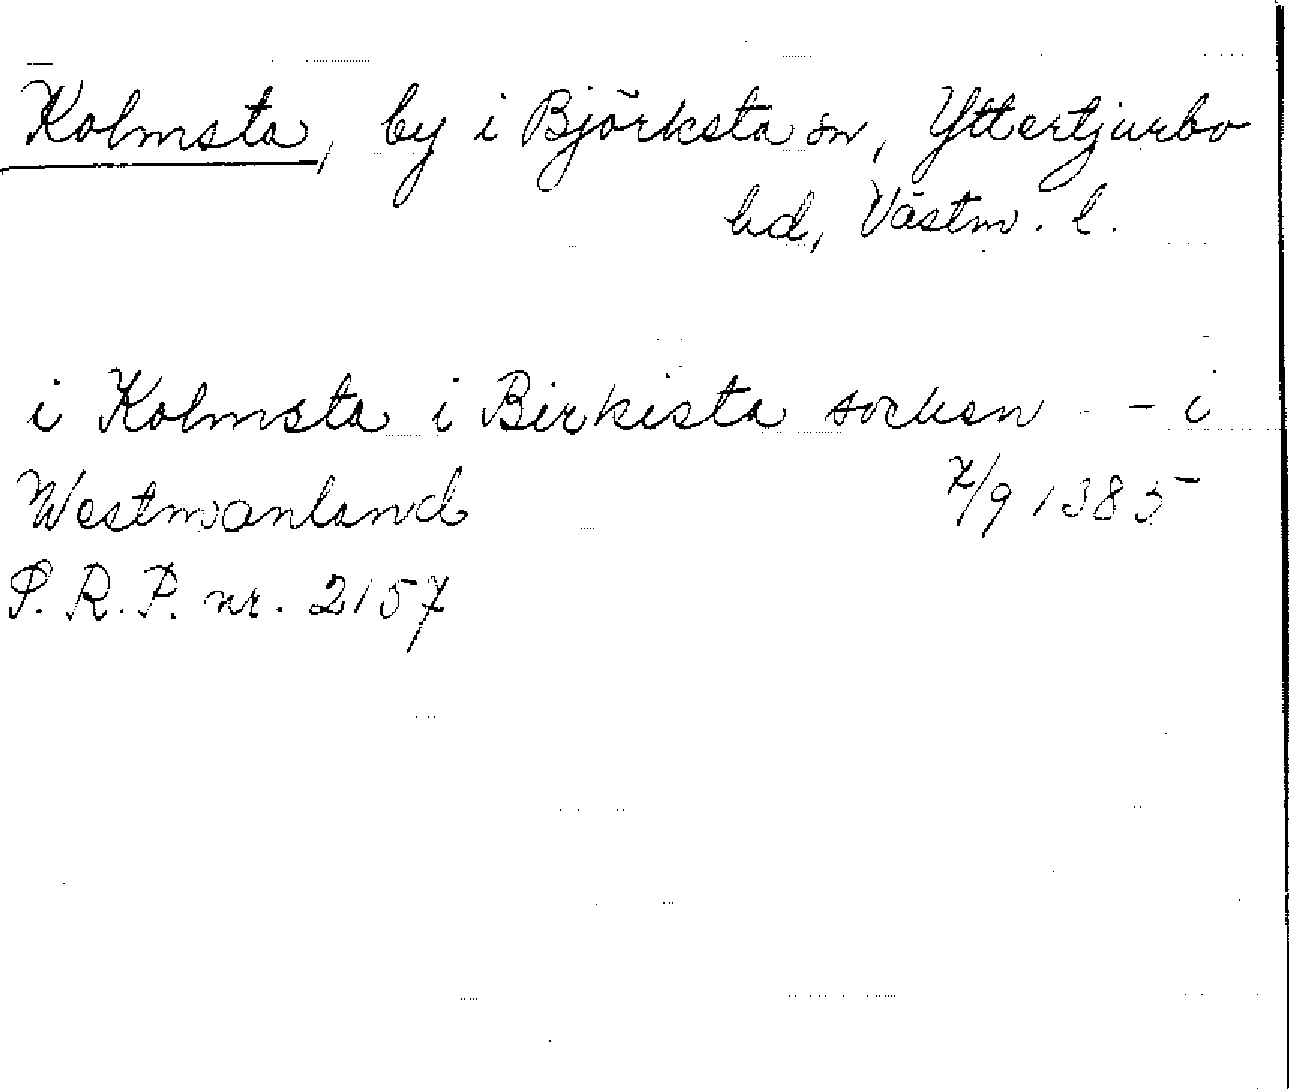 Kolmsta, by i Björksta sn, Yttertjurbo
hd, Västm. l.
i Kolmsta i Birkista socken - - i
Westmanland 7/9 1385
P. R. P. nr. 2157